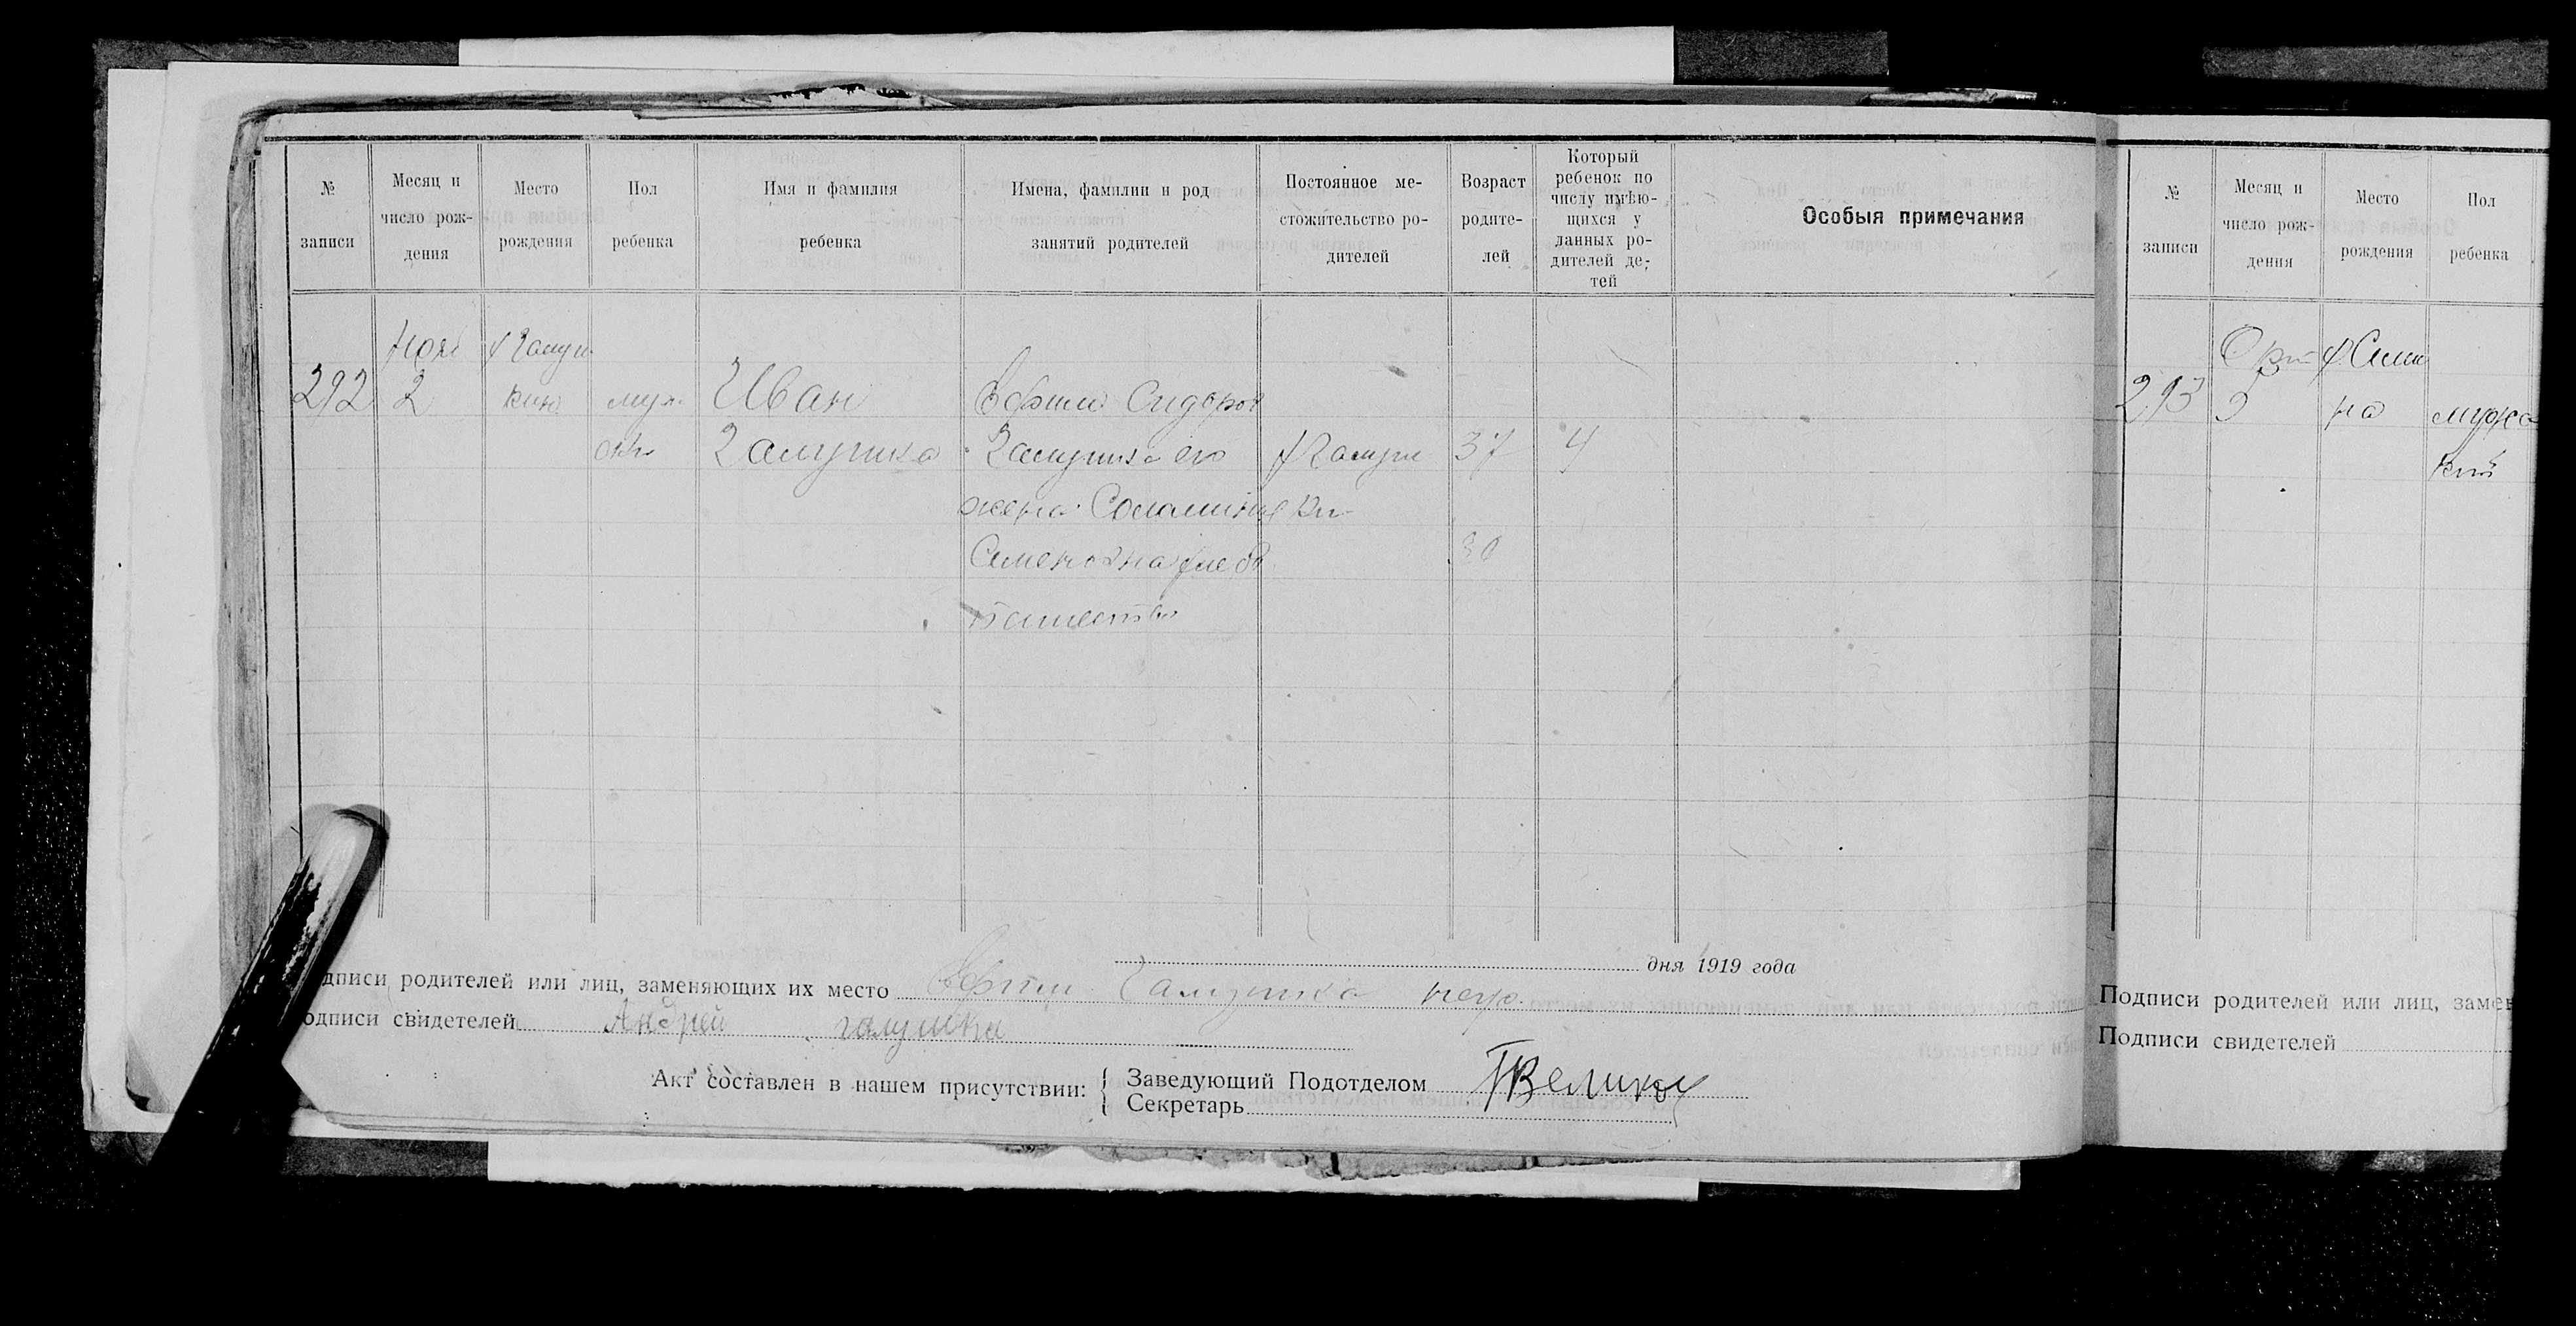 № записи
Месяц и число рож-дения
Место рождения
Пол ребенка
Имя и фамилия ребенка
Имена, фамилии и род занятий родителей
Постоянное ме-стожительство ро-дителей
Возраст родите-лей
Который ребенок по числу имѣю-щихся у данных ро-дителей де-тей
Особыя примечания
292
2
муж.
Иван
Галушка
Ефим Сидоров
Галушка его
жена
Семеновна
37
4
30
дня 1919 года
дписи родителей или лиц, заменяющих их место Ефим Галушка негр.
одписи свидетелей Андрей галушка
Акт составлен в нашем присутствии:
Заведующий Подотделом
Секретарь
№ записи
Месяц и число рож-дения
Место рождения
Пол ребенка
293
Окт
мужс
кий
Подписи родителей или лиц, замен
Подписи свидетелей